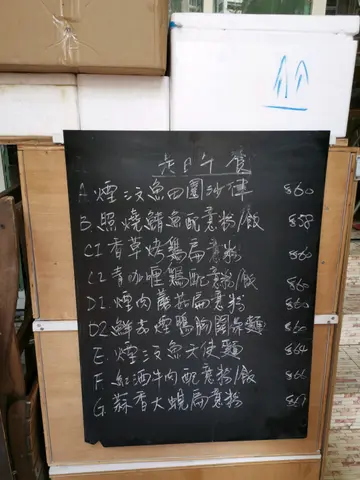 是日午餐
A.煙三文魚田園沙律 $60
B.照燒鯖魚配意粉/飯 $58
C1 香草烤鷄扁意粉 $60
C2 青咖喱鷄配意粉/飯 $60
D1.煙肉蘑菇扁意粉 $60
D2 鮮露煙鴨胸闊條麵 $60
E.煙三文魚天使麵 $64
F.紅酒牛肉配意粉/飯 $66
G.蒜香大蜆扁意粉